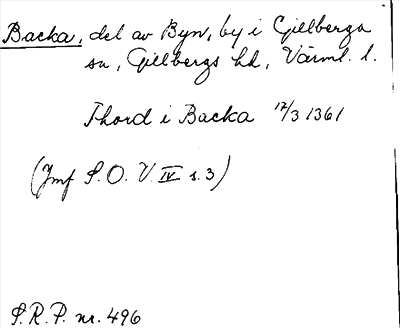 Backa, del av Byn, by i Gillberga
sn, Gillbergs hd, Värml. l.
Thord i Backa 17/3 1361
(Jmf S.O.V. IV s. 3)
S.R.P. nr. 496